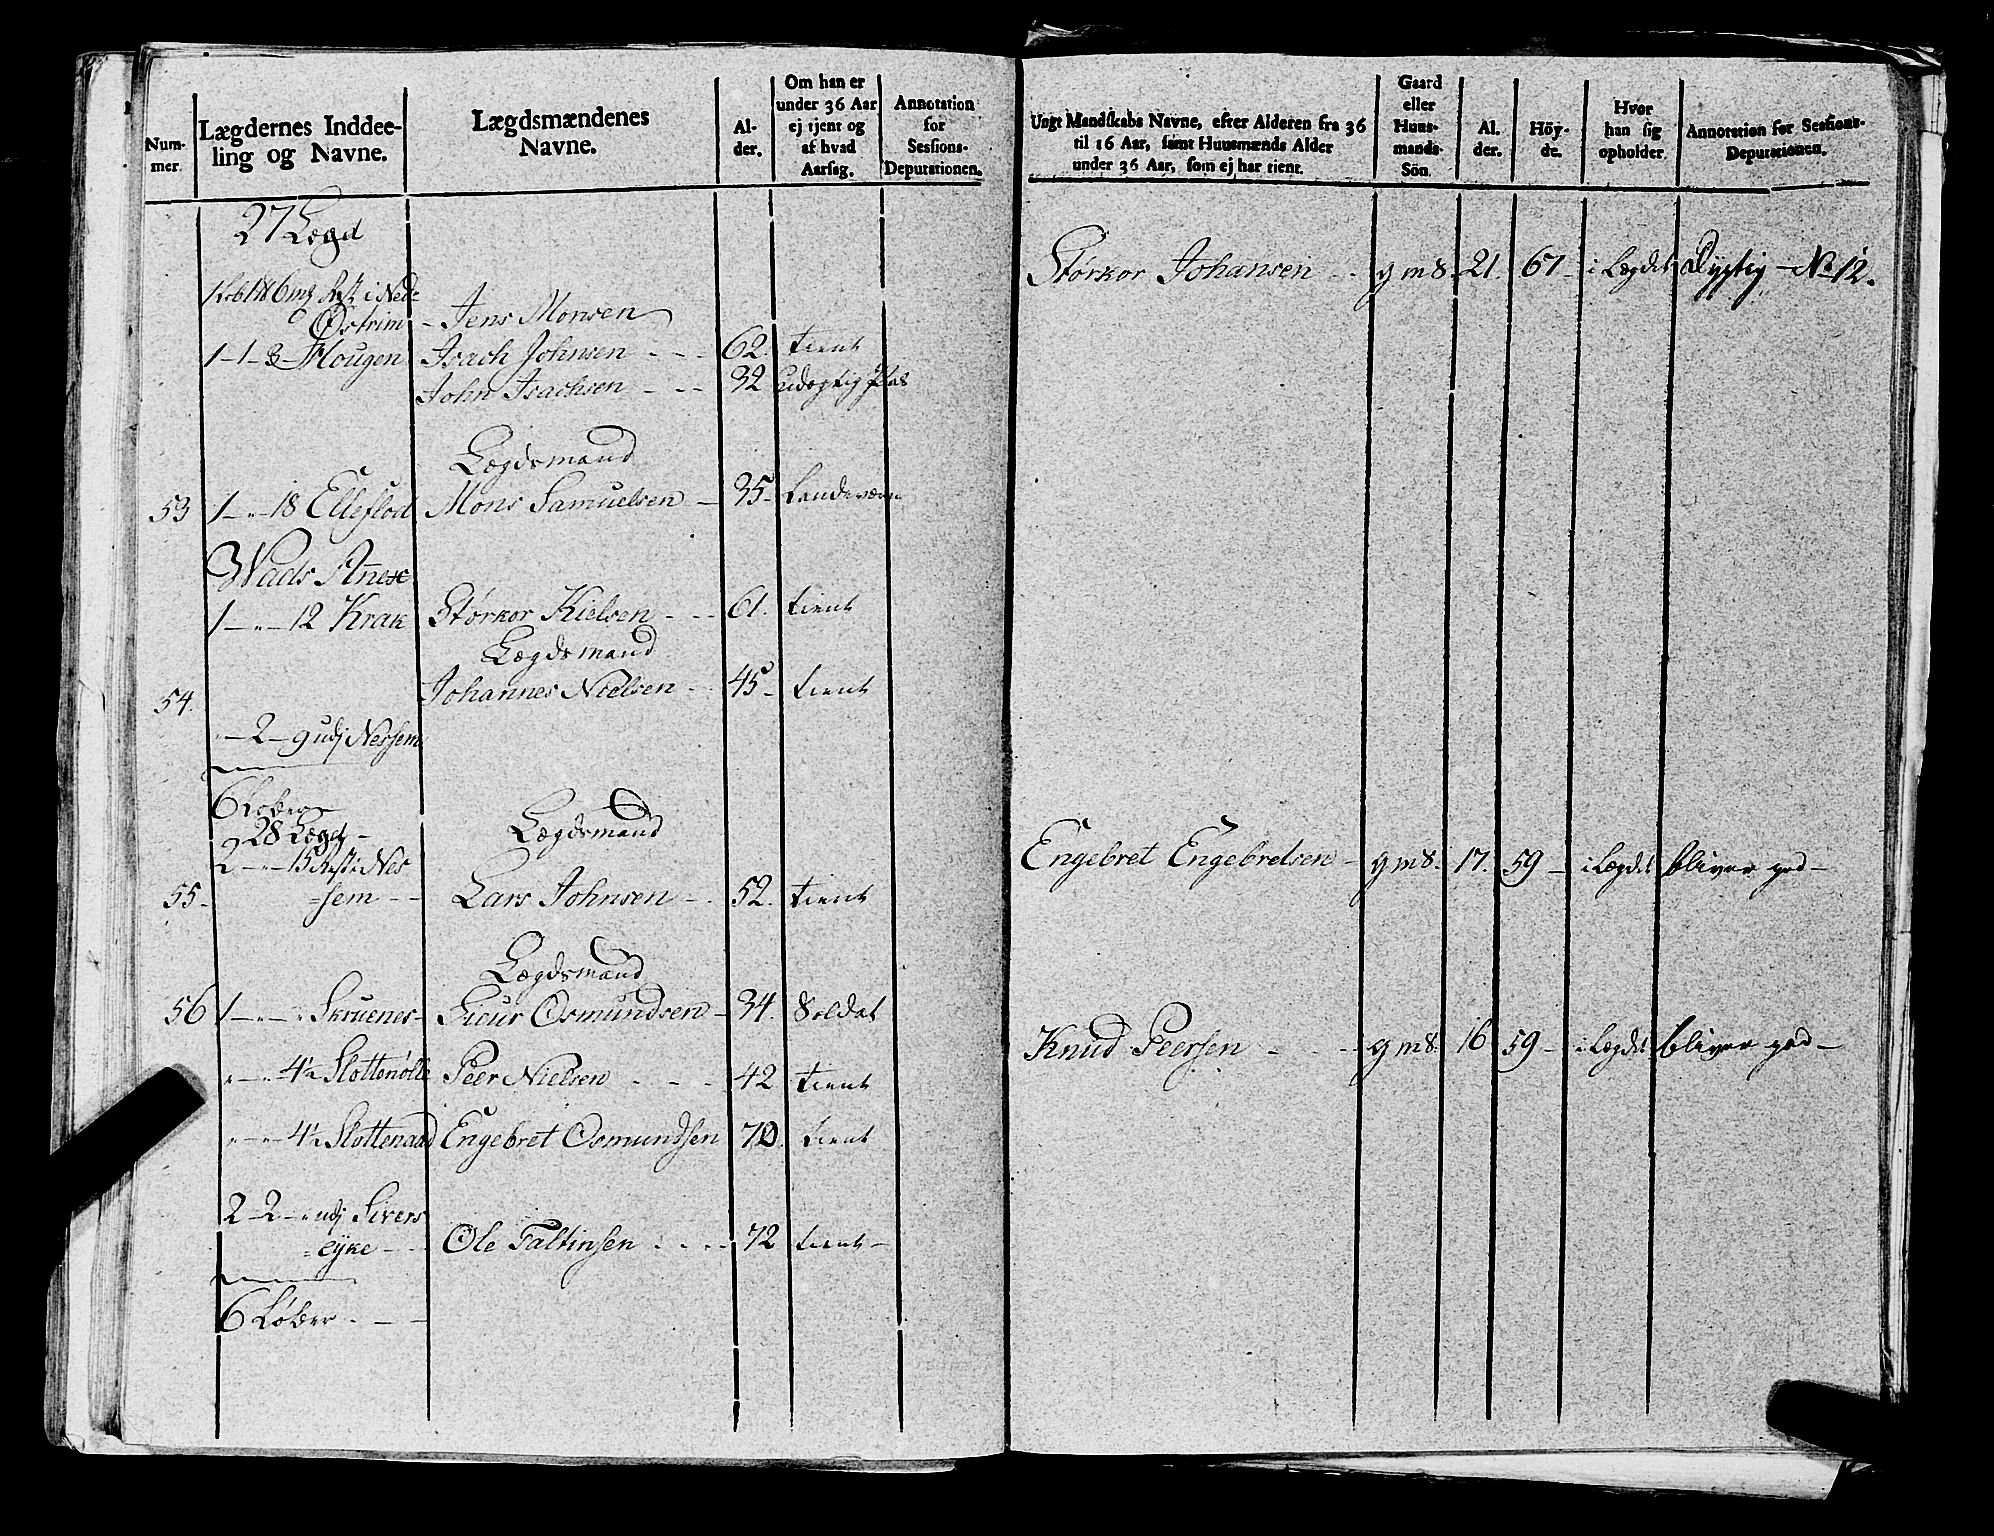 Num-
mer.
Lægdernes Inddee-
ling og Navne.
Lægdsmændenes
Navne.
Al-
der.
Om han er
under 36 Aar
ej tjent og
af hvad
Aarsag.
Annotation
for
Sessions-
Deputationen.
27 Lægd
i Ned-
Østrim - Jens Monsen
1-1-3- Hougen Isach Johnsen - - - 62. tient
John Isachsen - - - 32
Lægdsmand
53 1 - " - 18 Elleflod Mons Samuelsen - 35 - Landeværn
Wads Anex
1 - " - 12 Krak Størkor Kielsen - - - 61. tient
Lægdsmand
54. Johannes Nielsen - - 45 - tient
" - 2 - 9 udj Nessem
6 Løber
28 Lægd - Lægdsmand
2 - " - 15 Rest i Nes
55. =sem - - Lars Johnsen - - 52. tient
Lægdsmand
56 1 - " - " Skruenes - Siur Osmundsen - 34. Soldat
" - " - 4½ Slottenølle Peer Nielsen - - - 42 tient
" - " - 4½ Slottenaad Engebret Osmundsen 70. tient
2 - 2 - " udj Sivers
=eyke - - - Ole Faltinsen - - - - 72 tient -
6 Løber - - -
Ungt Mandskabs Navne, efter Alderen fra 36
til 16 Aar, samt Huusmænds Alder
under 36 Aar, som ej har tient.
Gaard
eller
Huus-
mands-
Sön.
Al.
der.
Höy-
de.
Hvor
han sig
opholder.
Annotation for Sessions-
Deputationen.
Størkor Johansen - - g m s. 21. 67 - i Lægdet Dygtig - No 12.
Engebret Engebretsen - g m s. 17. 59 - i Lægdet bliver god -
Knud Peersen - - - - g m s. 16 59 - i Lægdet bliver god -